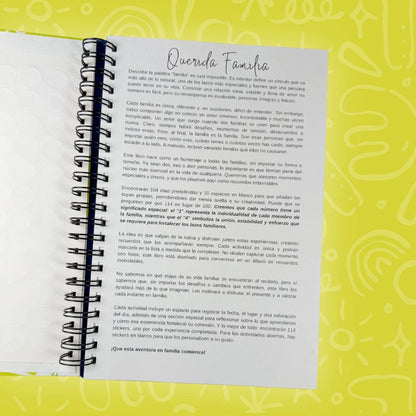 Querida Familia
Describir la palabra "familia" es casi imposible. Es intentar definir un vínculo que va
más allá de lo natural, uno de los lazos más especiales y fuertes que una persona
puede tener en su vida. Construir una relación sana, estable y llena de amor no
siempre es fácil, pero su recompensa es invaluable: personas íntegras y felices.
Cada familia es única, diferente y, en ocasiones, difícil de entender. Sin embargo,
todas comparten algo en común: un amor extremo, incondicional y muchas veces
inexplicable. Un amor que surge cuando dos familias se unen para crear una
nueva. Claro, siempre habrá desafíos, momentos de tensión, desacuerdos e
incluso enojo. Pero, al final, la familia es la familia. Son esas personas que, sin
importar quién eres, cómo eres, cuánto tienes o cuántas veces has caído, siempre
estarán a tu lado. A menudo, incluso sanando heridas que ellos no causaron.
Este libro nace como un homenaje a todas las familias, sin importar su forma o
tamaño. Ya sean dos, tres o diez personas, lo importante es que forman parte del
núcleo más esencial en la vida de cualquiera. Queremos que atesoren momentos
especiales y únicos, y que los plasmen aquí como recuerdos imborrables.
Encontrarán 104 citas predefinidas y 10 espacios en blanco para que añadan las
suyas propias, permitiéndoles dar rienda suelta a su creatividad. Puede que se
pregunten por qué 114 en lugar de 100. Creemos que cada número tiene un
significado especial: el "1" representa la individualidad de cada miembro de
la familia, mientras que el "4" simboliza la unión, estabilidad y esfuerzo que
se requiere para fortalecer los lazos familiares.
La idea es que salgan de la rutina y disfruten juntos estas experiencias, creando
recuerdos que los acompañarán siempre. Cada actividad es única y podrán
marcarla en la lista a medida que la completen. No olviden capturar cada momento
con fotos, este libro está diseñado para convertirse en un álbum de recuerdos
inolvidables.
No sabemos en qué etapa de su vida familiar se encuentran al recibirlo, pero sí
sabemos que, sin importar los desafíos o cambios que enfrenten, este libro les
ayudará más de lo que imaginan. Los motivará a disfrutar el presente y a valorar
cada instante en familia.
Cada actividad incluye un espacio para registrar la fecha, el lugar y una valoración
del día, además de una sección especial para reflexionar sobre lo que aprendieron
y cómo esa experiencia fortaleció su conexión. Y lo mejor de todo: encontrarán 114
stickers, uno por cada experiencia completada. Para las actividades abiertas, hay
stickers en blanco para que los personalicen a su gusto.
¡Que esta aventura en familia comience!